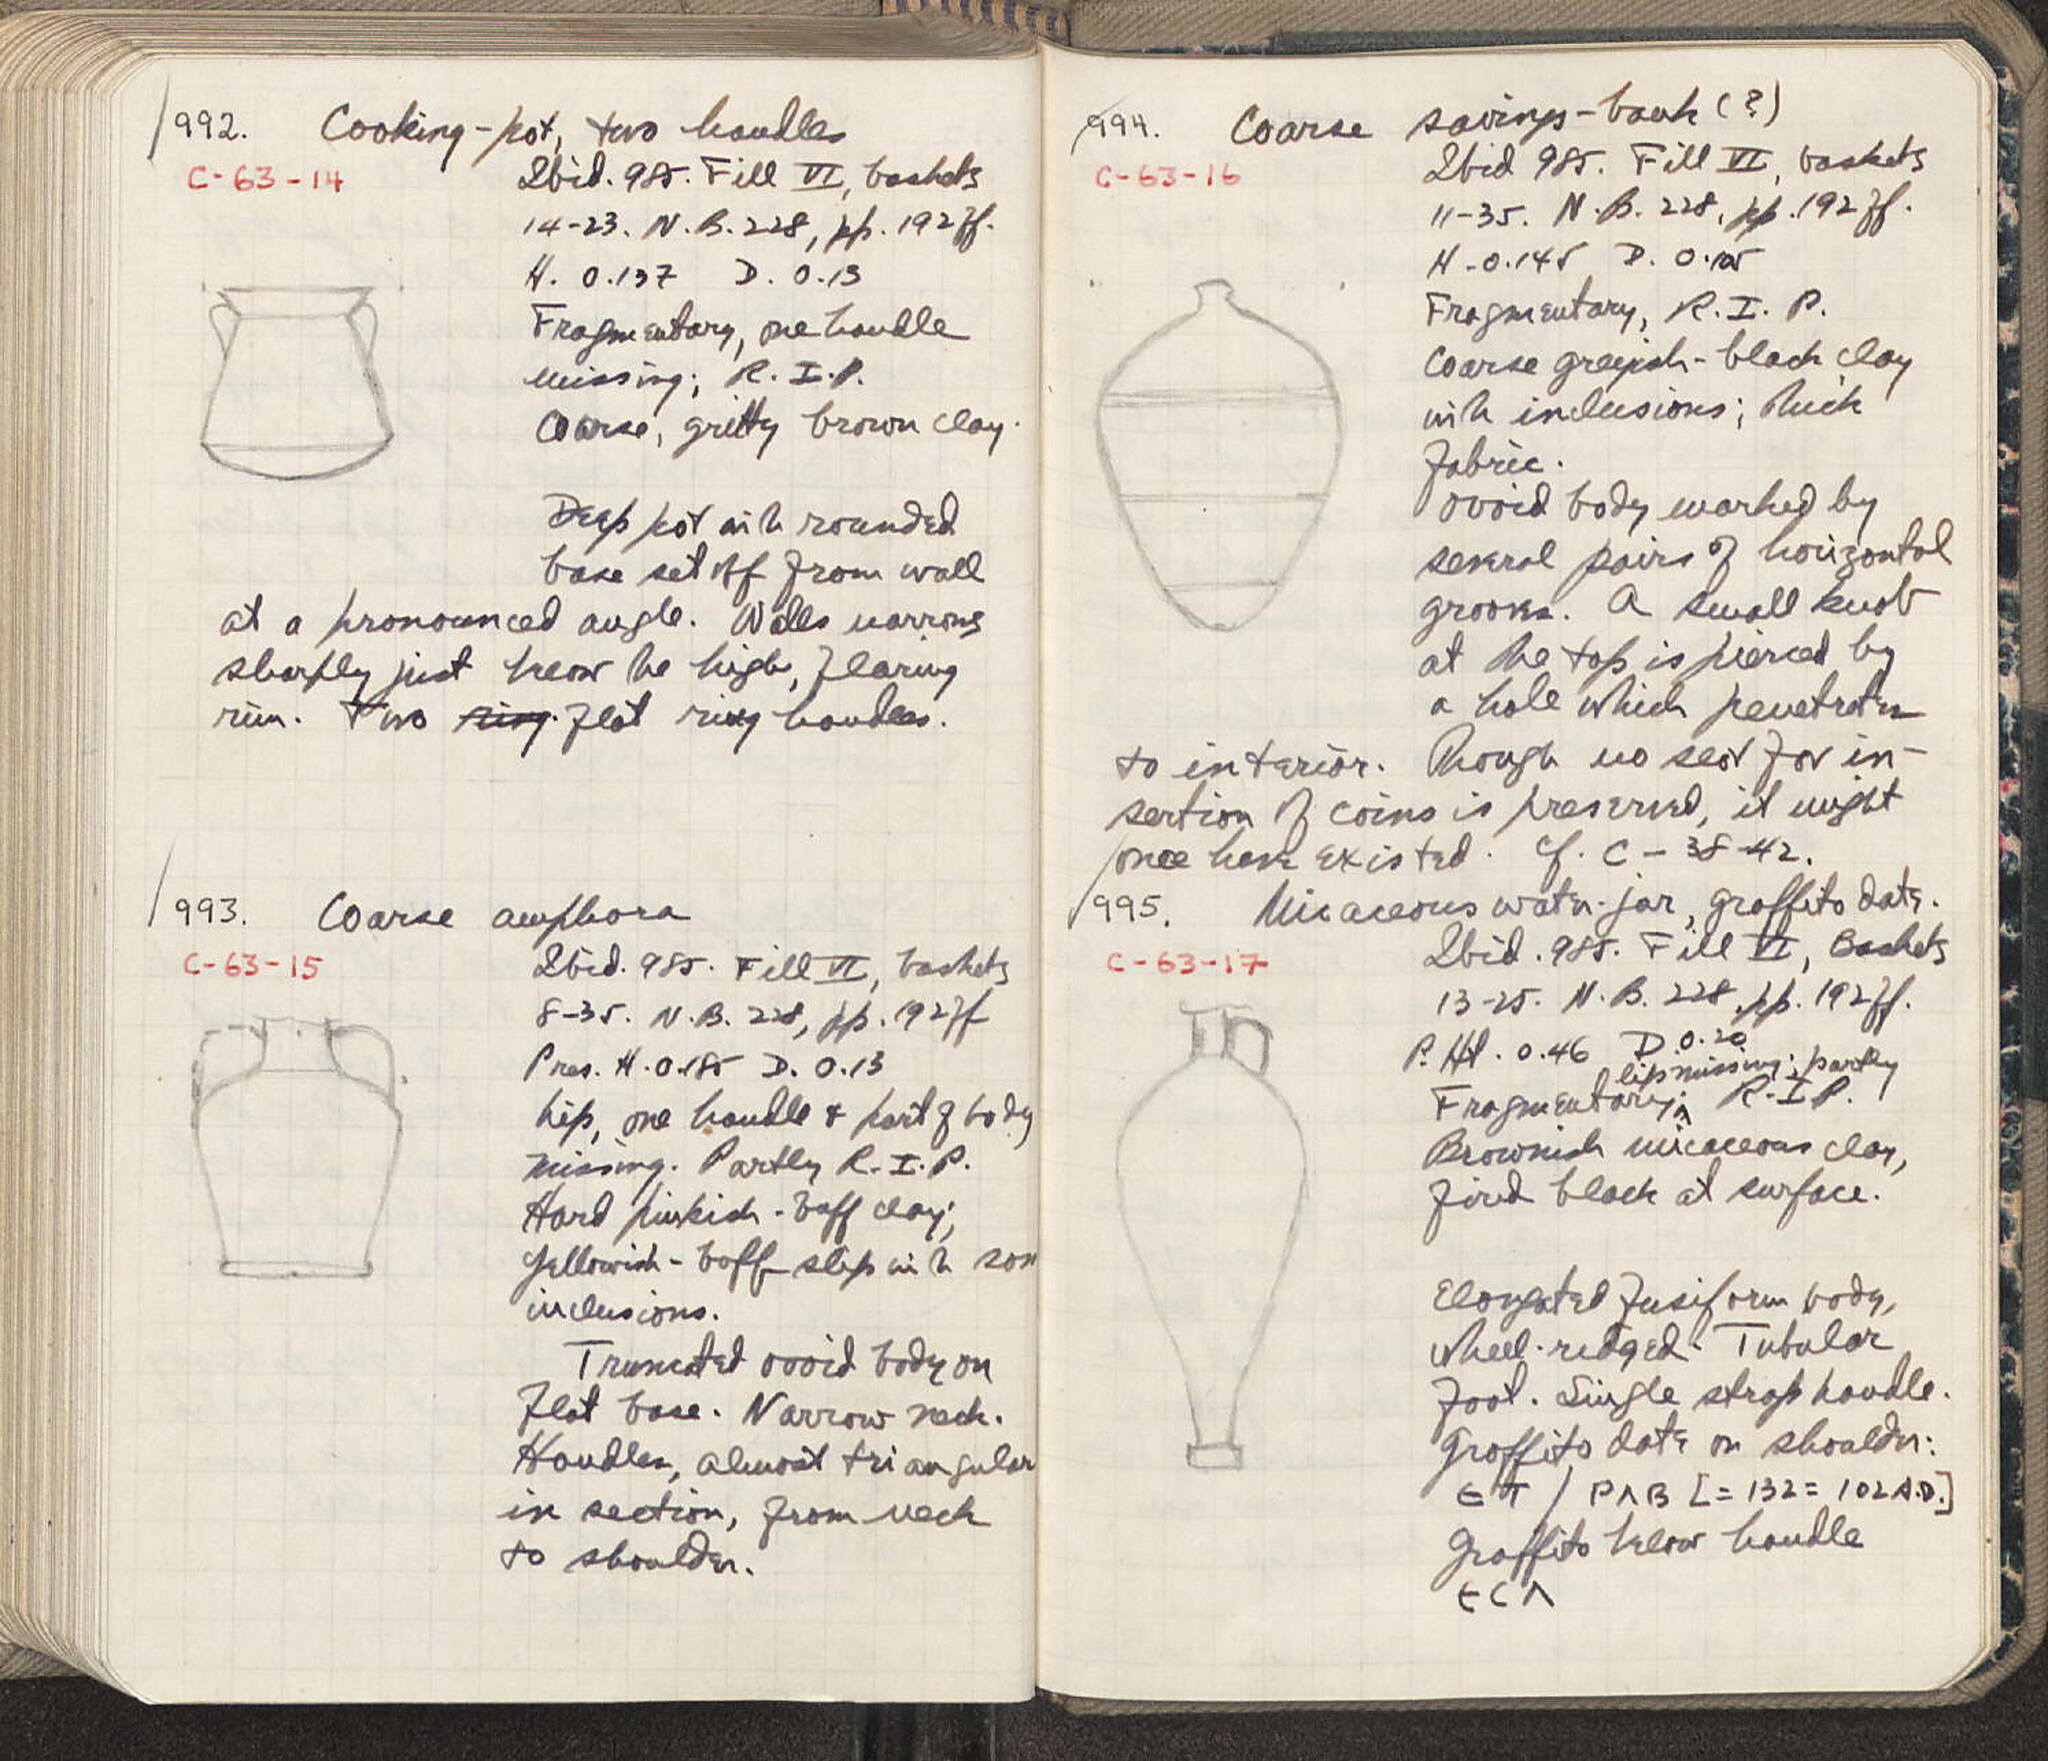 992. Cooking-pot, two handles
C-63-14
Ibid. 985. Fill VI, baskets
14-23. N.B. 228, pp. 192 ff.
H. 0.137 D. 0.13
Fragmentary, one handle
missing; R.I.P.
Coarse, gritty brown clay.
Deep pot with rounded
base set off from wall
at a pronounced angle. Walls narrows
sharply just below the high, flaring
rim. Two ring flat ring handles.
993. Coarse amphora
C-63-15
Ibid. 985. Fill VI, baskets
8-35. N.B. 228, pp. 192 ff
Pres. H. 0.185 D. 0.13
Lip, one handle & part of body
missing. Partly R.I.P.
Hard pinkish-buff clay;
yellowish-buff slip with som
inclusions.
Truncated ovoid body on
flat base. Narrow neck.
Handles, almost triangular
in section, from neck
to shoulder.
994. Coarse savings-bank (?)
C-63-16
Ibid 985. Fill VI, baskets
11-35. N.B. 228, pp. 192 ff.
H-0.145 D. 0.105
Fragmentary, R.I.P.
Coarse greyish-black clay
with inclusions; thick
fabric.
Ovoid body marked by
several pairs of horizontal
grooves. A small knob
at the top is pierced by
a hole which penetrates
to interior. Though no slot for in-
sertion of coins is preserved, it might
once have existed. Cf. C-38-42.
995. Micaceous water-jar, graffito date.
C-63-17
Ibid. 985. Fill VI, Baskets
13-25. N.B. 228, pp. 192 ff.
P. Ht. 0.46 D 0.20
lip missing; partly
Fragmentary; R.I.P.
Brownish micaceous clay,
fired black at surface.
Elongated fusiform body,
wheel-ridged. Tubular
foot. Single strap handle.
Graffito date on shoulder:
ЄT / PΛB [= 132 = 102 A.D.]
Graffito below handle
ЄCΛ